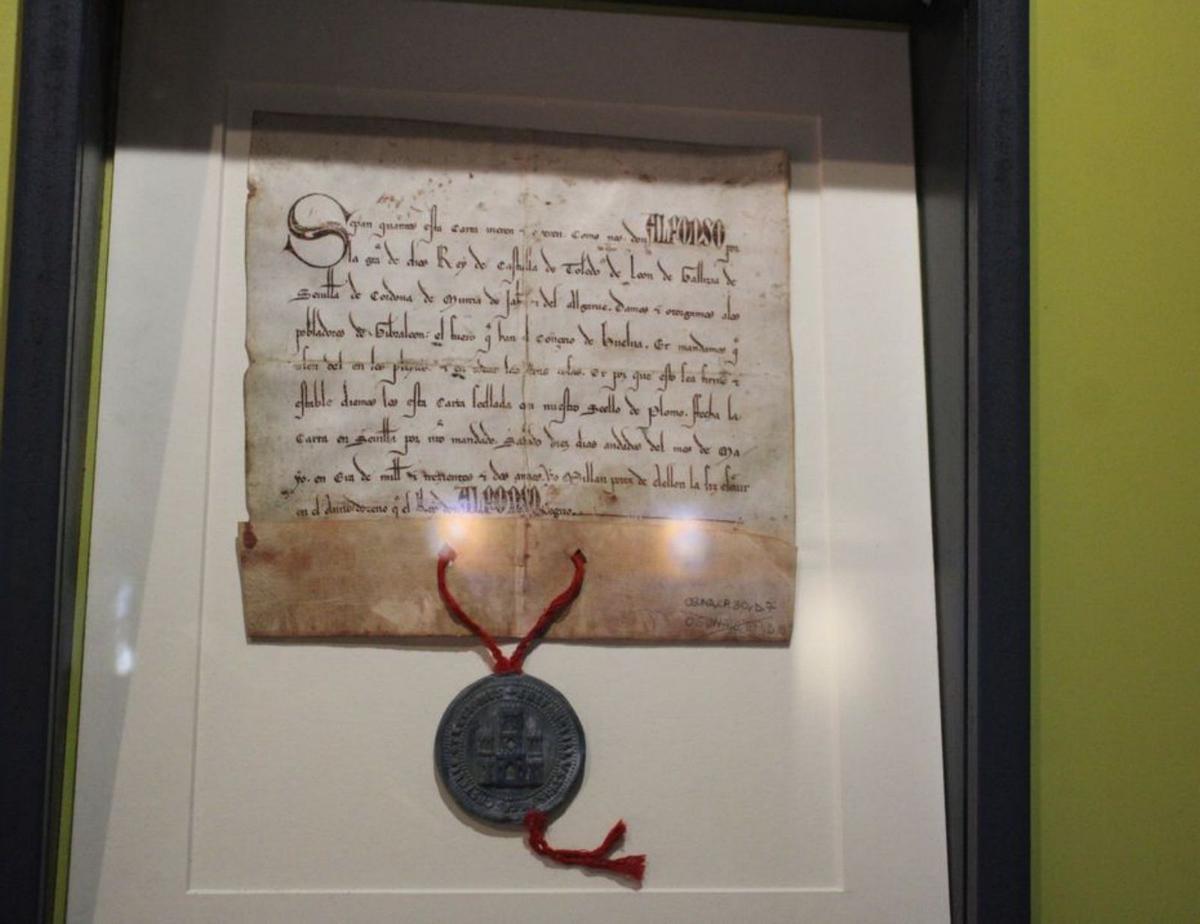 Sepan quantos esta Carta vieren τ oyeren. Como nos don ALFONSO por
la gra de dios Rey de Castiella de Toledo de Leon de Gallizia de
Seuilla de Cordoua de Murcia de Jahn τ del Algarue. Damos τ otorgamos alos
pobladores de Gibraleon: el fuero q han el Conceio de Huelua. Et mandamos q
en todas las cosas. Et por que esto sea firme τ
estable diemos les esta Carta seellada con nuestro Seello de Plomo. ffecha la
Carta en Seuilla por nro mandado. Sabado diez dias andados del mes de Ma
yo. en Era de mill τ trezientos τ dos annos. Yo Millan perez de aellon la fiz escriuir
en el Anno dozeno q el Rey don ALFONSO Regno.